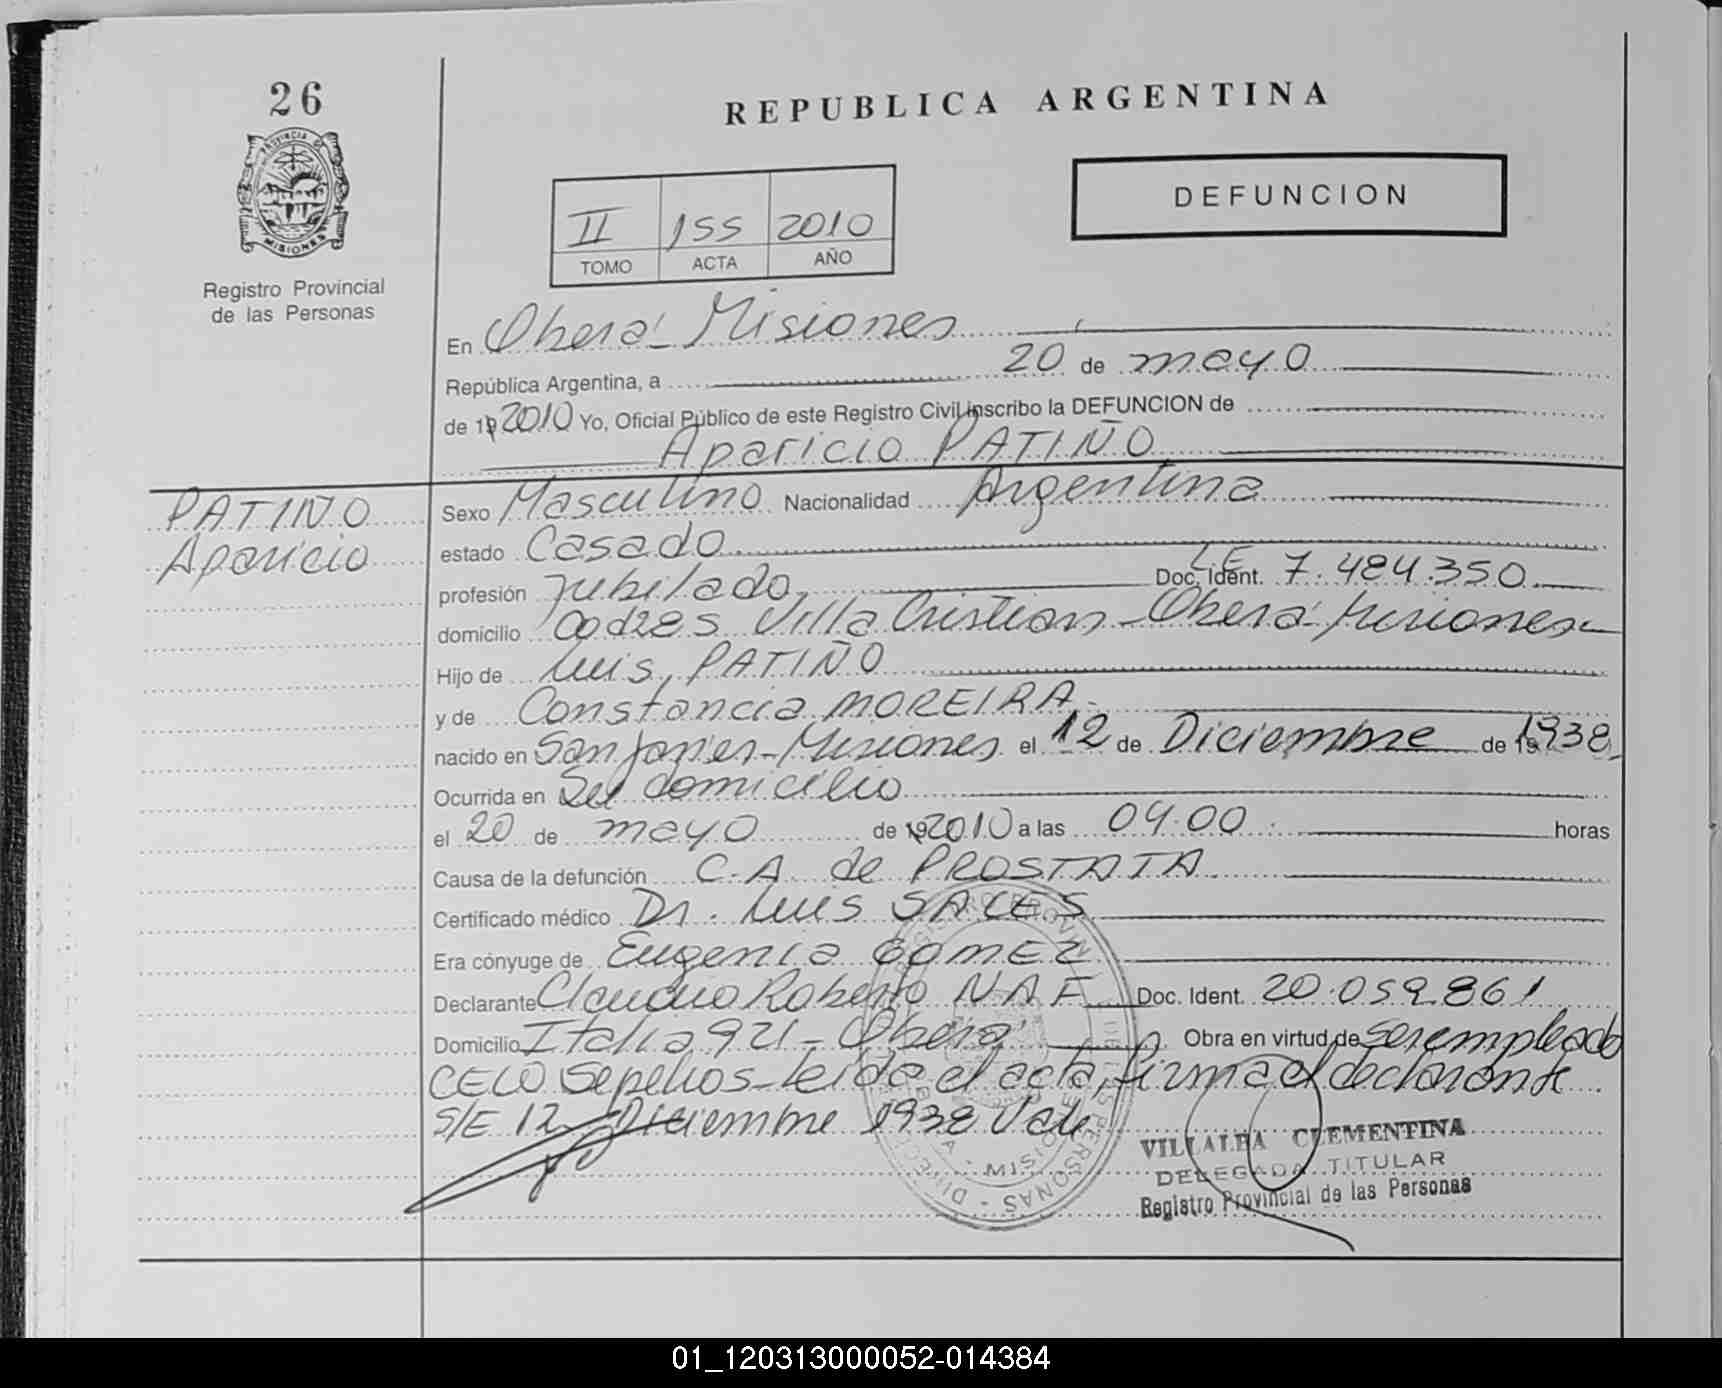 26
REPUBLICA ARGENTINA
PROVINCIA DE
MISIONES
Registro Provincial
de las Personas
DEFUNCION
II 155 2010
TOMO ACTA AÑO
En Oberá - Misiones
República Argentina, a 20 de mayo
de 19 2010 Yo, Oficial Público de este Registro Civil inscribo la DEFUNCION de
Aparicio PATIÑO
PATIÑO
Aparicio
Sexo Masculino Nacionalidad Argentina
estado Casado
profesión Jubilado Doc. Ident. LE 7.484.350
domicilio Villa Cristian - Oberá - Misiones
Hijo de Luis, PATIÑO
y de Constancia MOREIRA
nacido en San Javier - Misiones el 12 de Diciembre de 1938
Ocurrida en Su domicilio
el 20 de mayo de 19 2010 a las 04.00 horas
Causa de la defunción C.A. de PROSTATA
Certificado médico Dr. Luis SALES
Era cónyuge de Eugenia GOMEZ
Declarante Claudio Roberto NAF Doc. Ident. 20.059.861
Domicilio Italia 921 - Oberá Obra en virtud de ser empleado
CELO Sepelios - Leída el acta, firma el declarante
S/E 12 Diciembre 1938 Vale
VILLALBA CLEMENTINA
DELEGADA TITULAR
Registro Provincial de las Personas
01_120313000052-014384